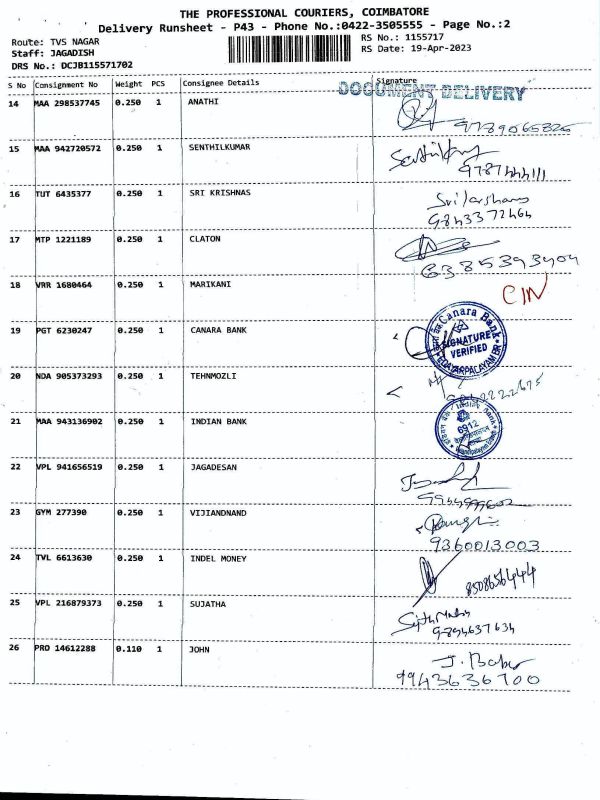 THE PROFESSIONAL COURIERS, COIMBATORE
Delivery Runsheet - P43 - Phone No.:0422-3505555 - Page No.:2
Route: TVS NAGAR
RS No.: 1155717
Staff: JAGADISH
RS Date: 19-Apr-2023
DRS No.: DCJB115571702
S No Consignment No Weight PCS Consignee Details Signature
DOCUMENT DELIVERY
14 MAA 298537745 0.250 1 ANATHI
15 MAA 942720572 0.250 1 SENTHILKUMAR
9787444111
16 TUT 6435377 0.250 1 SRI KRISHNAS
9843372464
17 MTP 1221189 0.250 1 CLATON
6385393404
18 VRR 1680464 0.250 1 MARIKANI
CIN
19 PGT 6230247 0.250 1 CANARA BANK
Canara Bank
SIGNATURE
VERIFIED
20 NDA 905373293 0.250 1 TEHNMOZLI
21 MAA 943136902 0.250 1 INDIAN BANK
Indian Bank
6912
22 VPL 941656519 0.250 1 JAGADESAN
23 GYM 277390 0.250 1 VIJIANDNAND
9360013003
24 TVL 6613630 0.250 1 INDEL MONEY
8508656444
25 VPL 216879373 0.250 1 SUJATHA
9894637634
26 PRO 14612288 0.110 1 JOHN
J. Babu
9943636700